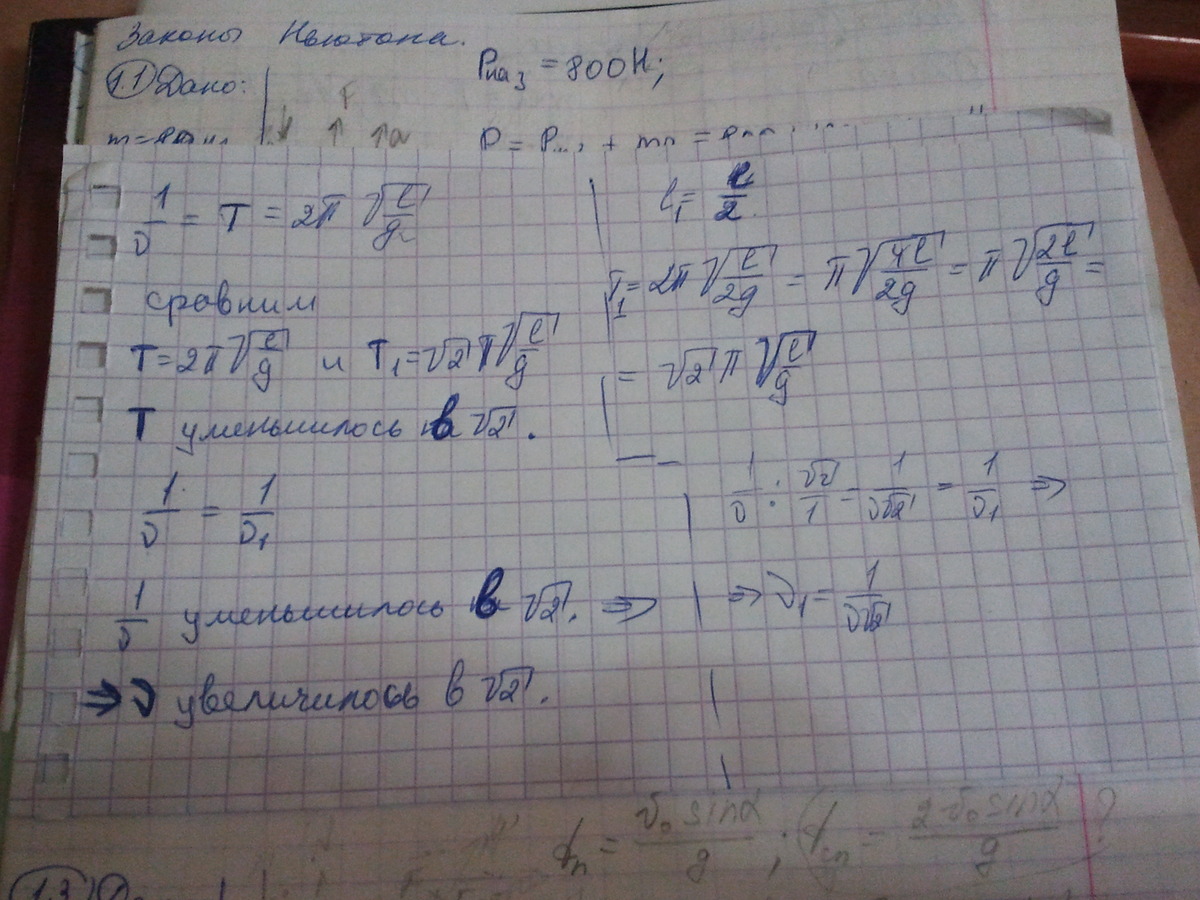 Законы Ньютона.
1.1 Дано:
Pна3 = 800Н;
F
a
1/ν = T = 2π √(l/g)
сравним
T = 2π√(l/g) и T₁ = √2 π√(l/g)
T уменьшилось в √2.
1/ν = 1/ν₁
1/ν уменьшилось в √2. ⇒
⇒ ν увеличилось в √2.
l₁ = l/2
T₁ = 2π√(l/2g) = π√(4l/2g) = π√(2l/g) =
= √2 π √(l/g)
1/ν : √2/1 = 1/ν√2 = 1/ν₁ ⇒
⇒ ν₁ = 1/ν√2
= v₀ sinα/g ; = 2v₀ sinα/g ?
1.3